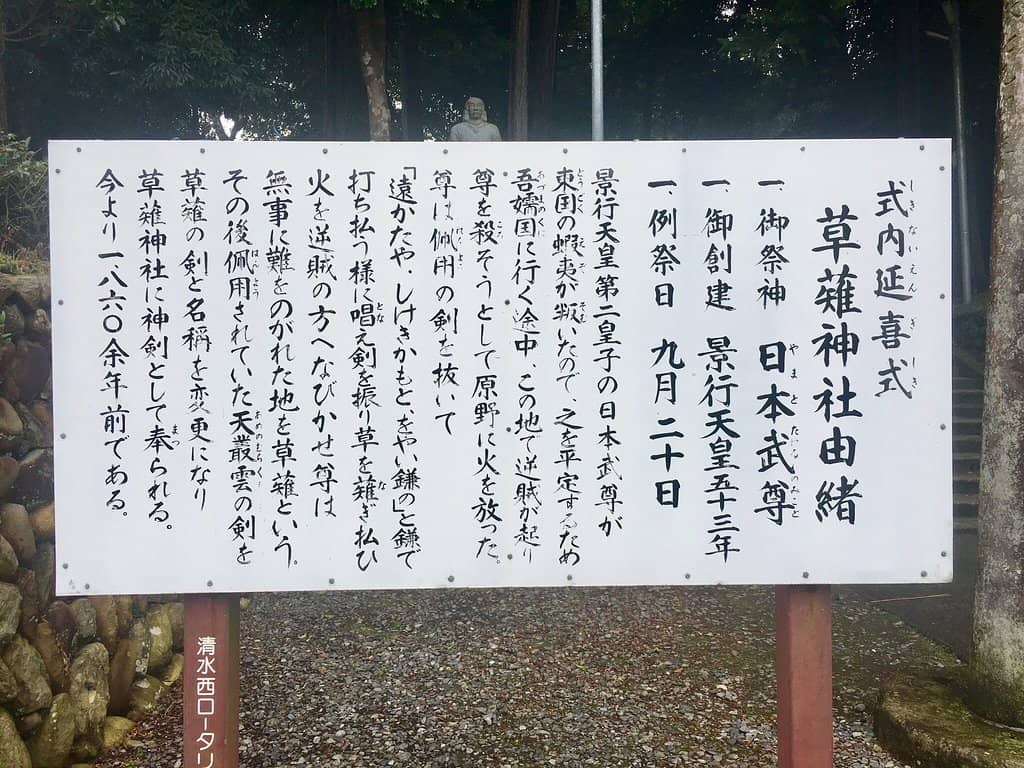 式内延喜式
草薙神社由緒
一、御祭神 日本武尊
一、御創建 景行天皇五十三年
一、例祭日 九月二十日
景行天皇第二皇子の日本武尊が
東国の蝦夷が叛いたので、之を平定するため
吾嬬国に行く途中、この地で逆賊が起り
尊を殺そうとして原野に火を放った。
尊は佩用の剣を抜いて
「遠かたや、しけきかもと、をやい鎌の」と鎌で
打ち払う様に唱え剣を振り草を薙ぎ払ひ
火を逆賊の方へなびかせ尊は
無事に難をのがれた地を草薙という。
その後佩用されていた天叢雲の剣を
草薙の剣と名稱を変更になり
草薙神社に神剣として奉られる。
今より一八六〇余年前である。
清水西ロータリ